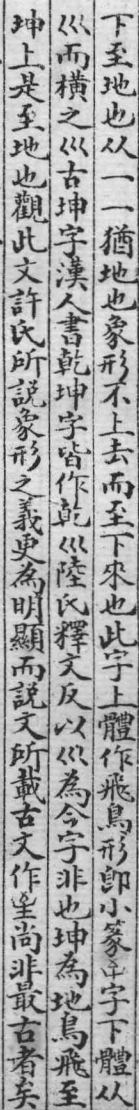 下至地也从一一猶地也象形不上去而至下來也此字上體作飛鳥形即小篆字下體从
巛而橫之巛古坤字漢人書乾坤字皆作乾巛陸氏釋文反以巛為今字非也坤為地鳥飛至
坤上是至地也觀此文許氏所說象形之義更為明顯而說文所載古文作尚非最古者矣